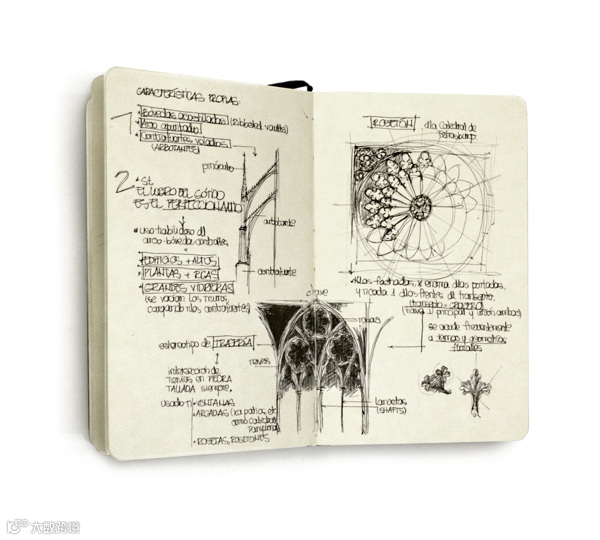 CARACTERÍSTICAS PROPIAS
1
• Bóvedas acostilladas (Ribbed vaults)
• Arco apuntado
• Contrafuertes volados
(ARBOTANTES)
pináculo
2
EL LOGRO DEL GÓTICO
ES EL PERFECCIONAMIENTO
arbotante
• uso habilidoso dl
arco-bóveda-contrafte.
• EDIFICIOS + ALTOS
• PLANTAS + RICAS
• GRANDES VIDRIERAS
(se vacían los muros
cargando n los contrafuertes)
contrafuerte
clave
rosetas
esternotipo de TRACERÍA
nervios
intersección de
nervios en PIEDRA
TALLADA siempre.
usado n • VENTANAS
• ARCADAS (xa patios, etc
como Catedral
Pamplona)
• ROSETAS, ROSETONES
ROSETÓN
dla Catedral de
Estrasburgo
• N las fachadas, x encima dlas portadas,
y n cada 1 dlos frentes dl transepto.
(transepto = CRUCERO)
(nave ⊥ principal y unión ambas)
se acude frecuentemente
a temas y geometrías
florales
lancetas
(SHAFTS)
大数跨境